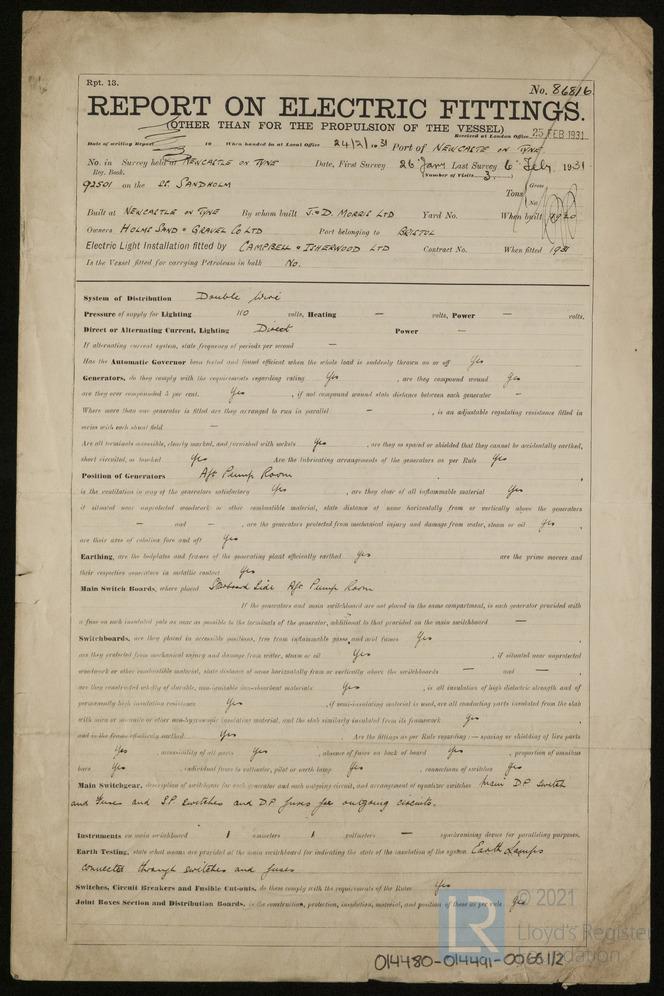 Rpt. 13.
No. 86816
REPORT ON ELECTRIC FITTINGS.
(OTHER THAN FOR THE PROPULSION OF THE VESSEL)
Received at London Office 25 FEB 1931
Date of writing Report 19 When handed in at Local Office 24/2/1931 Port of NEWCASTLE ON TYNE
No. in Survey held at NEWCASTLE ON TYNE Date, First Survey 26 Jany Last Survey 6 Feby 1931
Reg. Book. (Number of Visits 3.)
92501 on the SS. SANDHOLM Tons { Gross
Net
Built at NEWCASTLE ON TYNE By whom built J. & D. MORRIS LTD Yard No. When built
Owners HOLMS SAND & GRAVEL CO LTD Port belonging to BRISTOL
Electric Light Installation fitted by CAMPBELL & ISHERWOOD LTD Contract No. When fitted 1931
Is the Vessel fitted for carrying Petroleum in bulk No.
System of Distribution Double Wire
Pressure of supply for Lighting 110 volts, Heating — volts, Power — volts.
Direct or Alternating Current, Lighting Direct Power —
If alternating current system, state frequency of periods per second —
Has the Automatic Governor been tested and found efficient when the whole load is suddenly thrown on or off Yes
Generators, do they comply with the requirements regarding rating Yes , are they compound wound Yes
are they over compounded 5 per cent. Yes , if not compound wound state distance between each generator —
Where more than one generator is fitted are they arranged to run in parallel — , is an adjustable regulating resistance fitted in
series with each shunt field —
Are all terminals accessible, clearly marked, and furnished with sockets Yes , are they so spaced or shielded that they cannot be accidentally earthed,
short circuited, or touched Yes Are the lubricating arrangements of the generators as per Rule Yes
Position of Generators Aft Pump Room
is the ventilation in way of the generators satisfactory Yes , are they clear of all inflammable material Yes
if situated near unprotected woodwork or other combustible material, state distance of same horizontally from or vertically above the generators
— and — , are the generators protected from mechanical injury and damage from water, steam or oil Yes ,
are their axes of rotation fore and aft Yes
Earthing, are the bedplates and frames of the generating plant efficiently earthed Yes are the prime movers and
their respective generators in metallic contact Yes
Main Switch Boards, where placed Starboard Side Aft Pump Room
If the generators and main switchboard are not placed in the same compartment, is each generator provided with
a fuse on each insulated pole as near as possible to the terminals of the generator, additional to that provided on the main switchboard —
Switchboards, are they placed in accessible positions, free from inflammable gases and acid fumes Yes
are they protected from mechanical injury and damage from water, steam or oil Yes , if situated near unprotected
woodwork or other combustible material, state distance of same horizontally from or vertically above the switchboards — and — ,
are they constructed wholly of durable, non-ignitable non-absorbent materials Yes , is all insulation of high dielectric strength and of
permanently high insulation resistance Yes , if semi-insulating material is used, are all conducting parts insulated from the slab
with mica or micanite or other non-hygroscopic insulating material, and the slab similarly insulated from its framework Yes ,
and is the frame effectively earthed Yes . Are the fittings as per Rule regarding :— spacing or shielding of live parts
Yes , accessibility of all parts Yes , absence of fuses on back of board Yes , proportion of omnibus
bars Yes , individual fuses to voltmeter, pilot or earth lamp Yes , connections of switches Yes
Main Switchgear, description of switchgear for each generator and each outgoing circuit, and arrangement of equalizer switches Main D.P. switch
and fuses and S.P. switches and D.P. fuses for outgoing circuits.
Instruments on main switchboard 1 ammeters 1 voltmeters — synchronising device for paralleling purposes.
Earth Testing, state what means are provided at the main switchboard for indicating the state of the insulation of the system Earth Lamps
connected through switches and fuses
Switches, Circuit Breakers and Fusible Cut-outs, do these comply with the requirements of the Rules Yes
Joint Boxes Section and Distribution Boards, is the construction, protection, insulation, material, and position of these as per rule Yes
LR © 2021
Lloyd's Register
Foundation
014480-014491-0066 1/2